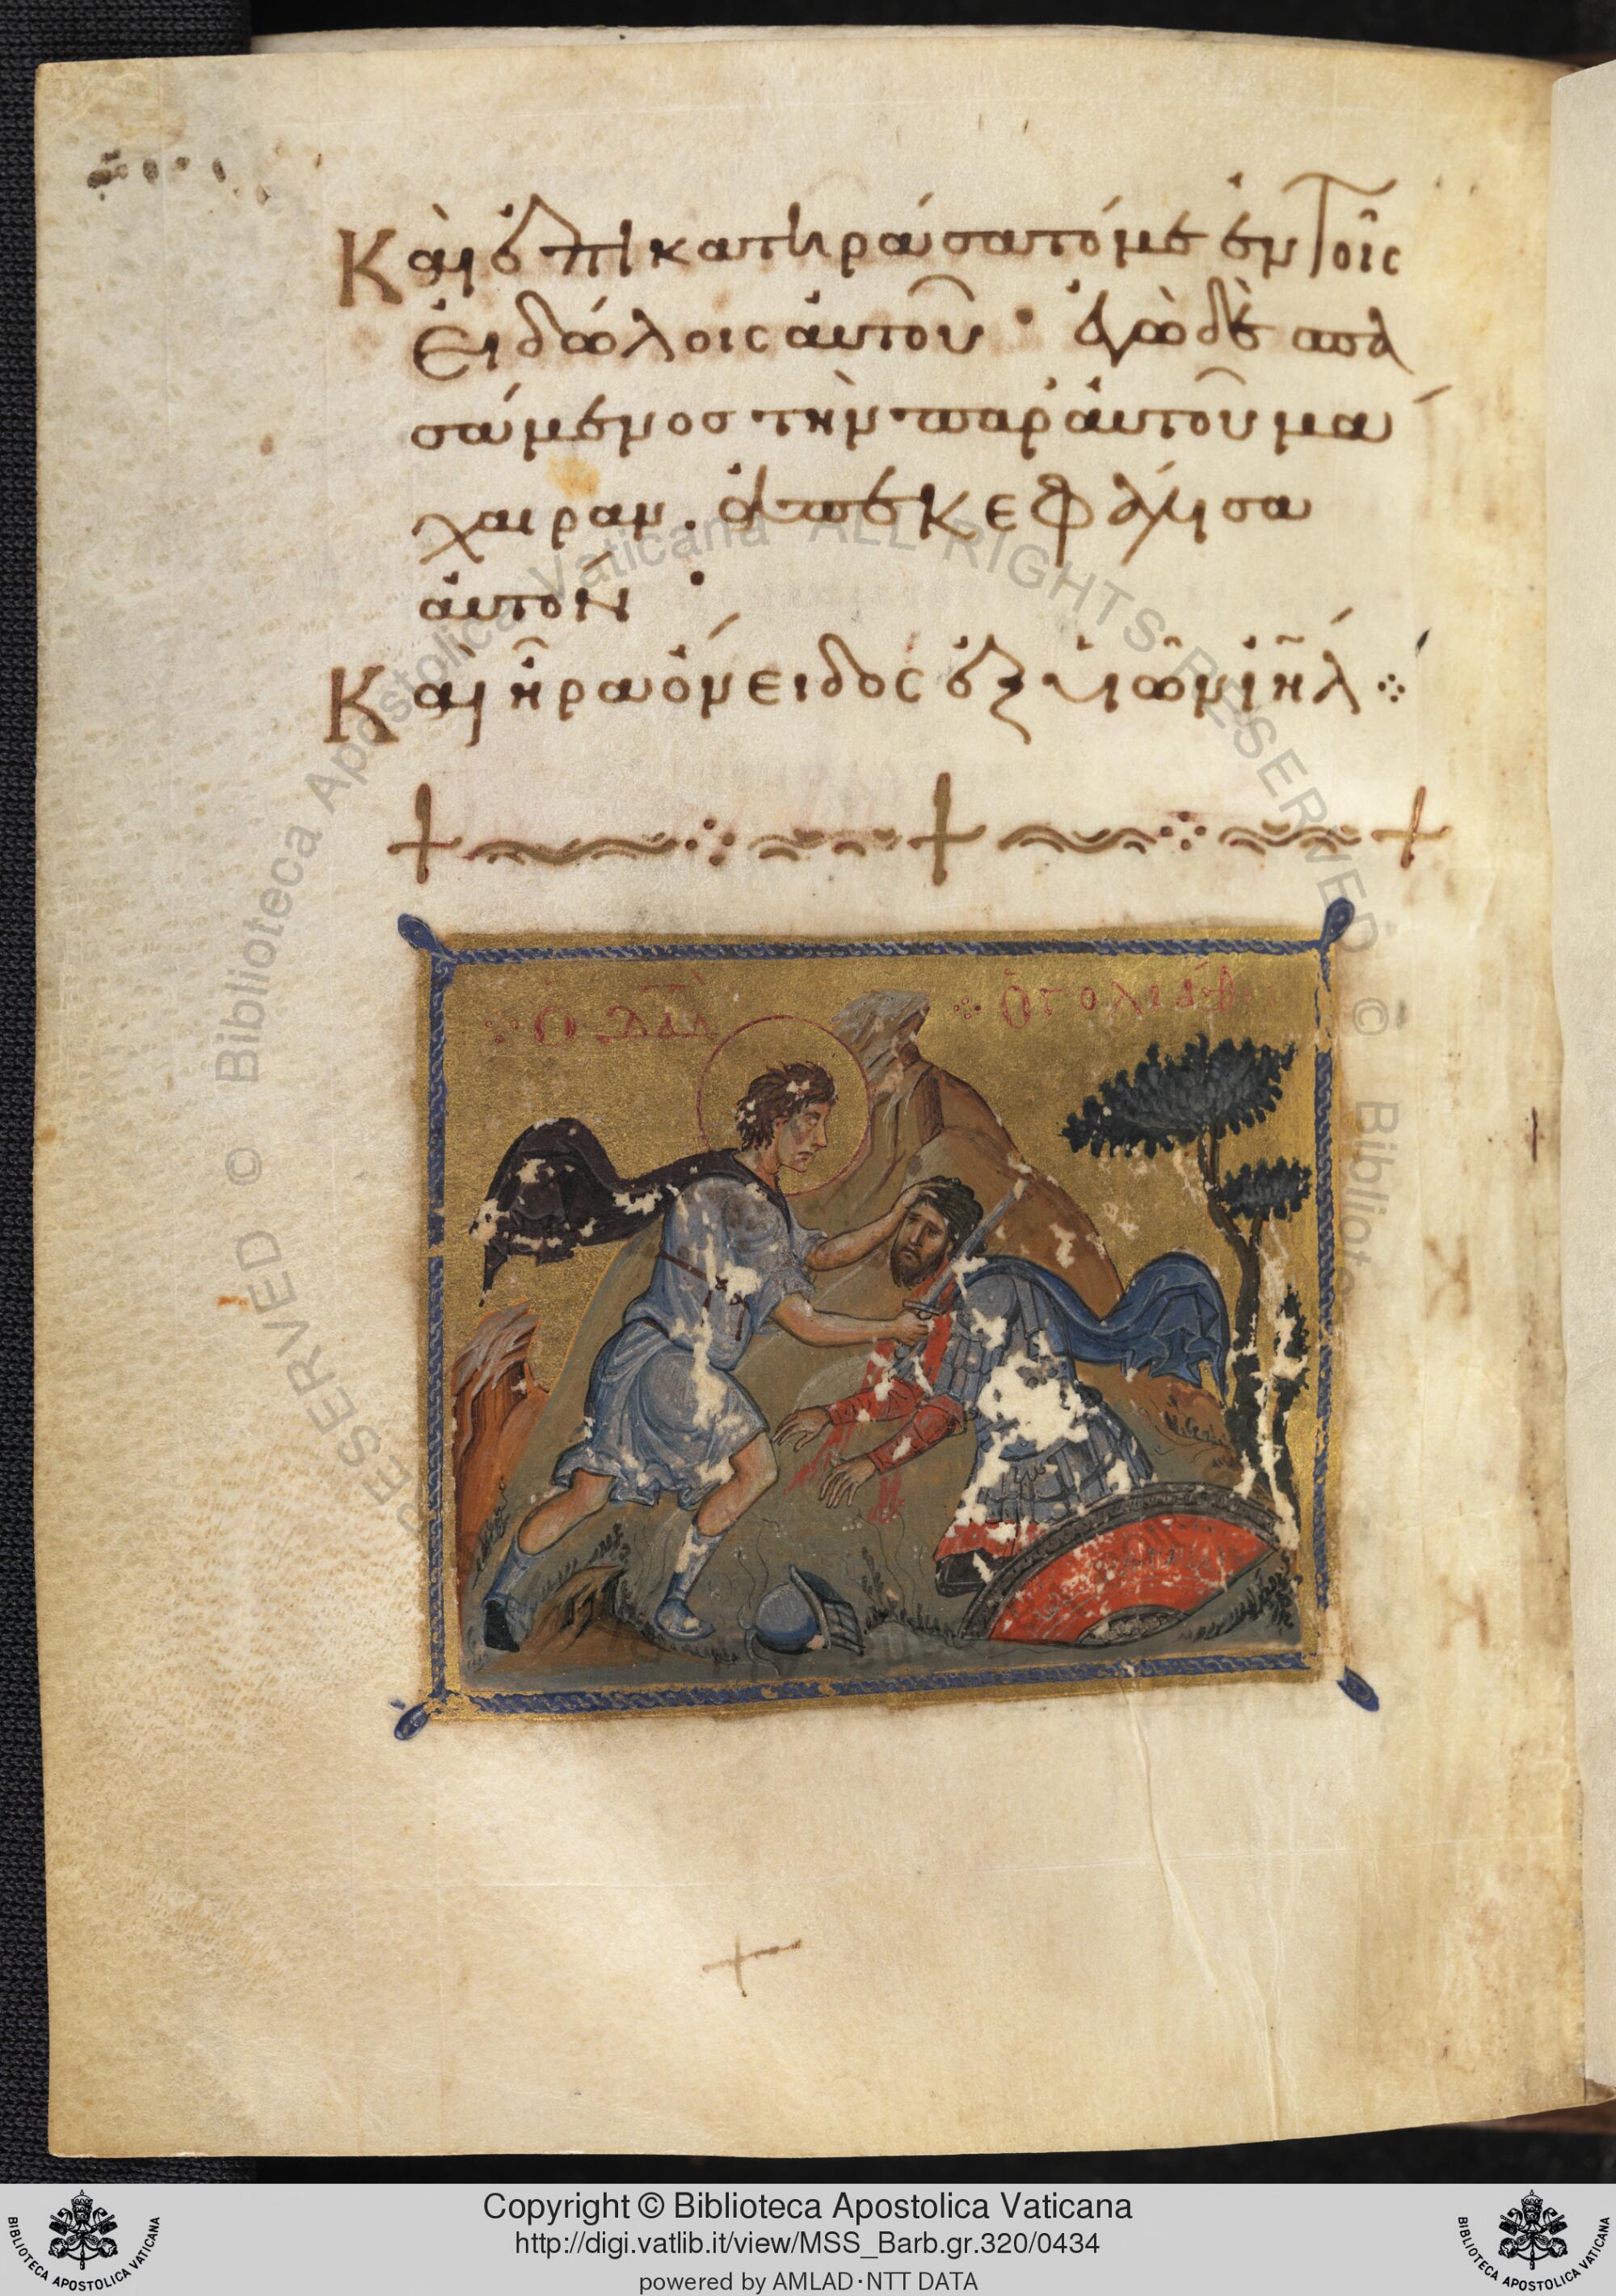 Καὶ ἐπικατηράσατό με ἐν τοῖς
εἰδώλοις αὐτοῦ · ἐγὼ δὲ σπα
σάμενος τὴν παρ αὐτοῦ μά
χαιραν · ἀπεκεφάλισα
αὐτόν ·
Καὶ ἦρα ὄνειδος ἐξ υἱῶν ιη̄λ ⁘
Ὁ Δᾱδ
Ὁ Γολιάθ
© Biblioteca Apostolica Vaticana ALL RIGHTS RESERVED © Biblioteca
Copyright © Biblioteca Apostolica Vaticana
http://digi.vatlib.it/view/MSS_Barb.gr.320/0434
powered by AMLAD·NTT DATA
BIBLIOTECA APOSTOLICA VATICANA
BIBLIOTECA APOSTOLICA VATICANA